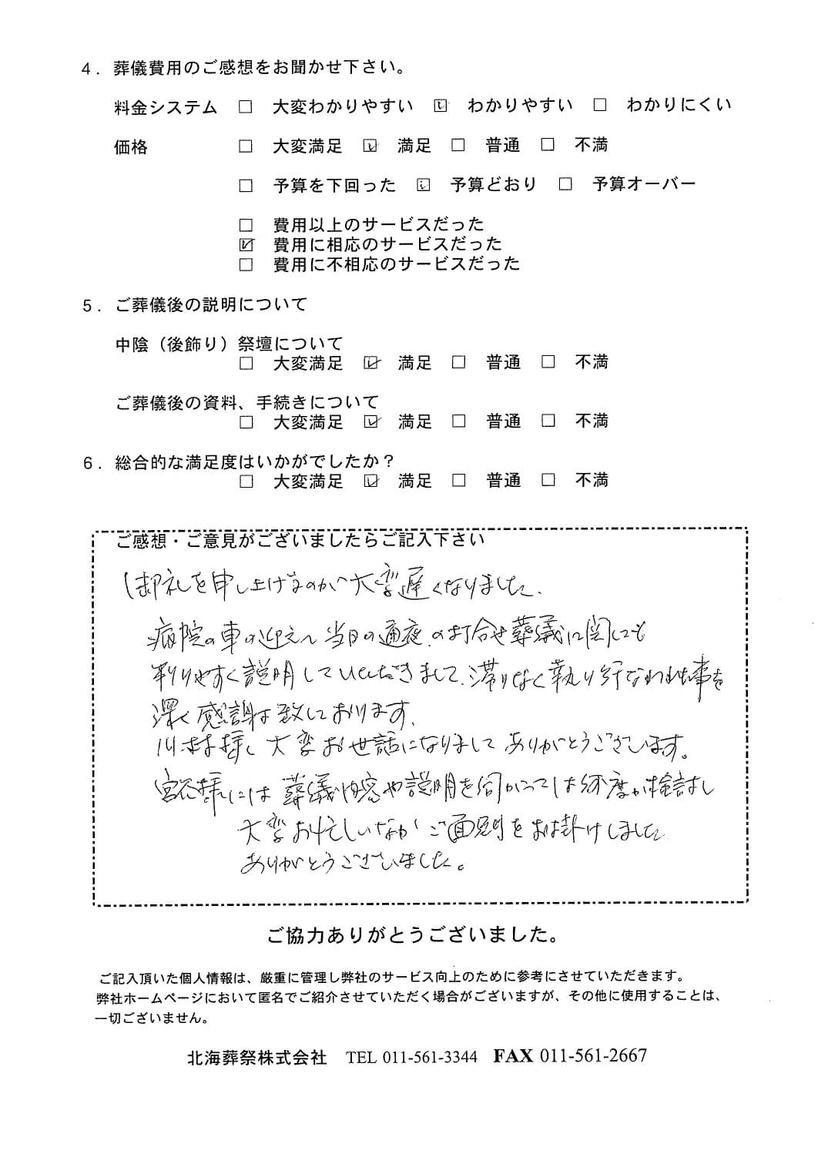 4．葬儀費用のご感想をお聞かせ下さい。
料金システム □ 大変わかりやすい ☑ わかりやすい □ わかりにくい
価格 □ 大変満足 ☑ 満足 □ 普通 □ 不満
□ 予算を下回った ☑ 予算どおり □ 予算オーバー
□ 費用以上のサービスだった
☑ 費用に相応のサービスだった
□ 費用に不相応のサービスだった
5．ご葬儀後の説明について
中陰（後飾り）祭壇について
□ 大変満足 ☑ 満足 □ 普通 □ 不満
ご葬儀後の資料、手続きについて
□ 大変満足 ☑ 満足 □ 普通 □ 不満
6．総合的な満足度はいかがでしたか？
□ 大変満足 ☑ 満足 □ 普通 □ 不満
ご感想・ご意見がございましたらご記入下さい
御礼を申し上げるのが大変遅くなりました.
病院の車の迎えへ当日の通夜.の打合せ葬儀に関しても
判りやすく説明していただきまして.滞りなく執り行なわれた事を
深く感謝は致しております.
大変お世話になりましてありがとうございます。
宮谷様には葬儀内容や説明を伺がっては何度か検討し
大変お忙しいなかご面倒をお掛けしました
ありがとうございました。
ご協力ありがとうございました。
ご記入頂いた個人情報は、厳重に管理し弊社のサービス向上のために参考にさせていただきます。
弊社ホームページにおいて匿名でご紹介させていただく場合がございますが、その他に使用することは、
一切ございません。
北海葬祭株式会社 TEL 011-561-3344 FAX 011-561-2667